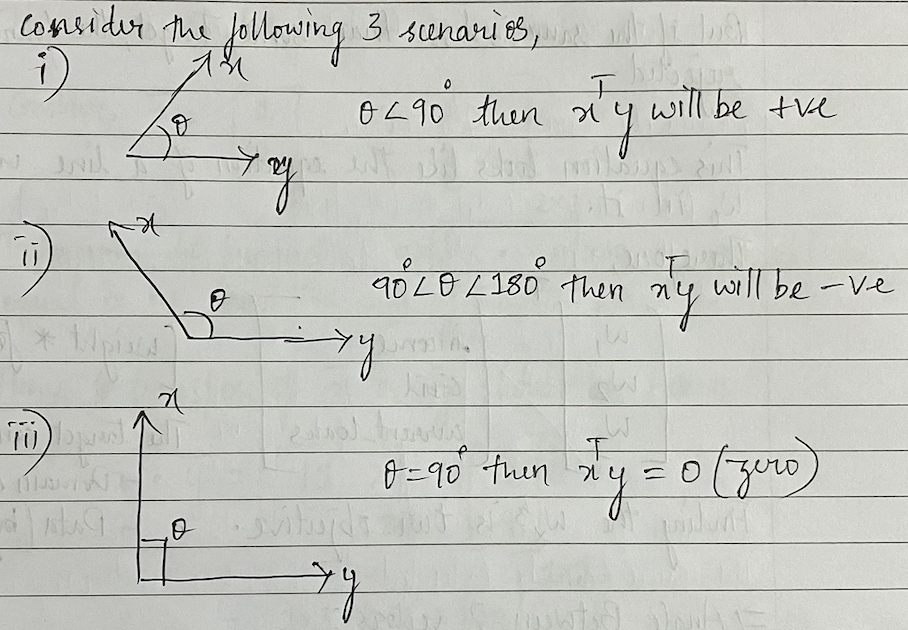 Consider the following 3 scenarios,
i) x
θ
θ<90° then xᵀy will be +ve
y
ii) x
θ
90°<θ<180° then xᵀy will be -ve
y
iii) x
θ=90° then xᵀy = 0 (zero)
θ
y